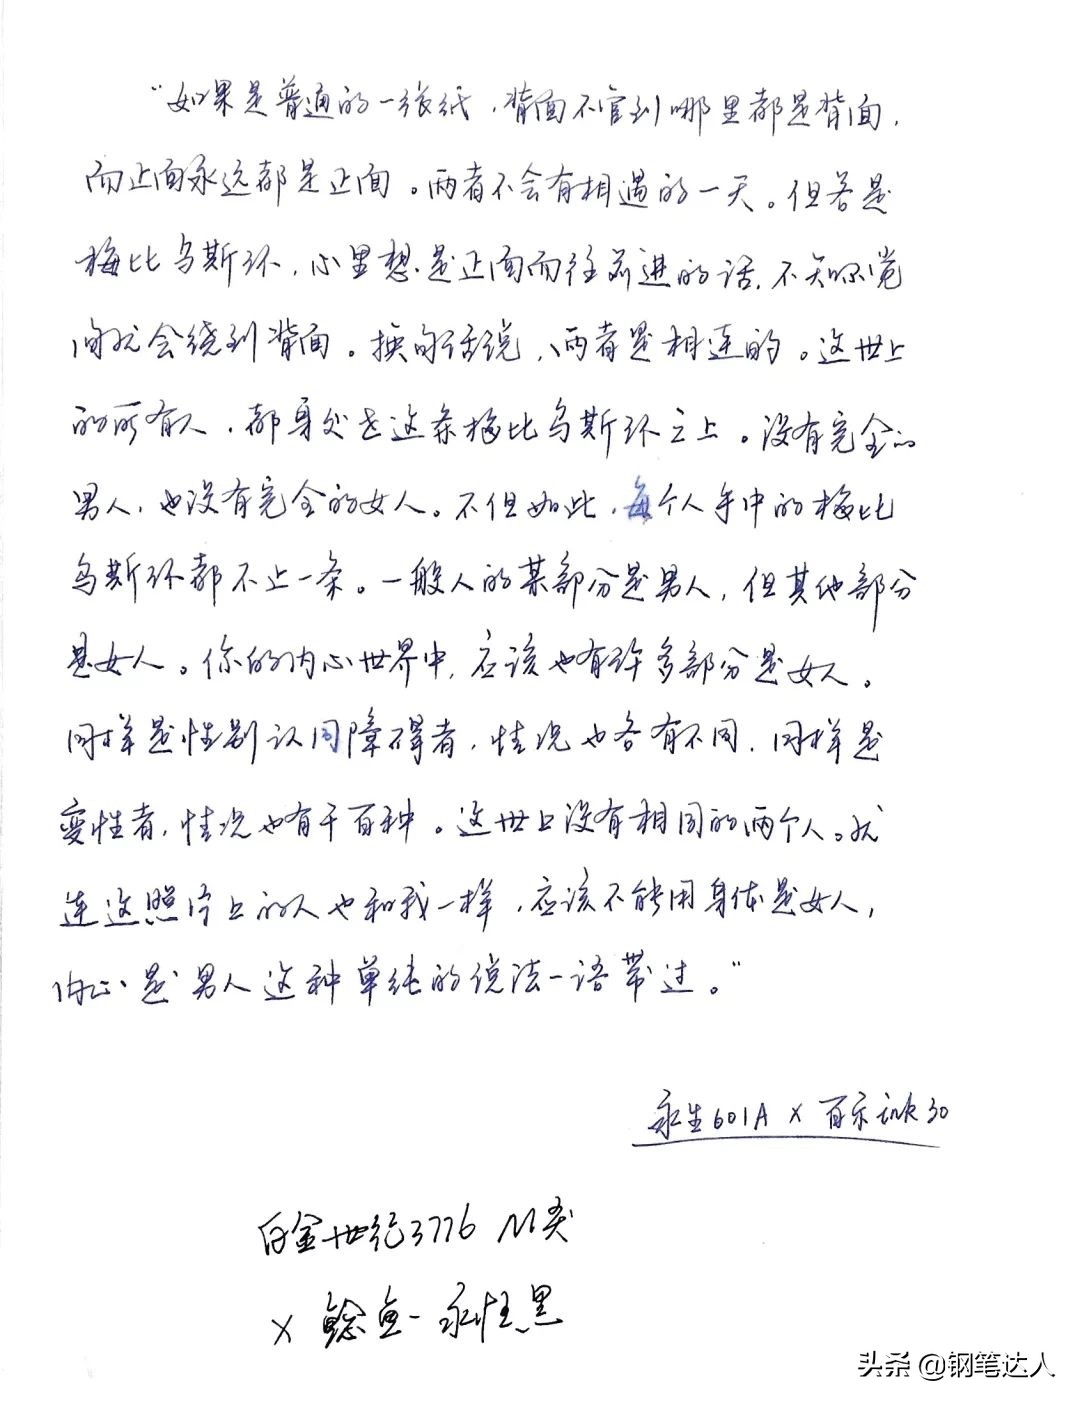 “如果是普通的一张纸，背面不管到哪里都是背面，
而正面永远都是正面。两者不会有相遇的一天。但若是
梅比乌斯环，心里想是正面而往前进的话，不知不觉
间就会绕到背面。换句话说，两者是相连的。这世上
的所有人，都身处在这条梅比乌斯环之上。没有完全的
男人，也没有完全的女人。不但如此，每个人手中的梅比
乌斯环都不止一条。一般人的某部分是男人，但其他部分
是女人。你的内心世界中，应该也有许多部分是女人。
同样是性别认同障碍者，情况也各有不同，同样是
变性者，情况也有千百种。这世上没有相同的两个人。就
连这照片上的人也和我一样，应该不能用身体是女人，
内心是男人这种单纯的说法一语带过。”
永生601A × 百乐ink30
白金世纪3776 M尖
× 鲶鱼-永恒黑
头条 @钢笔达人